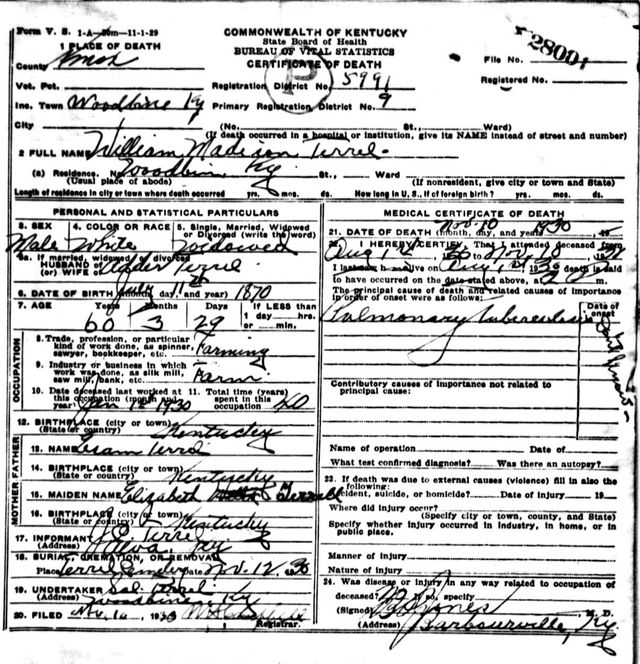 Form V. S. 1-A—50m—11-1-29
COMMONWEALTH OF KENTUCKY
State Board of Health
BUREAU OF VITAL STATISTICS
CERTIFICATE OF DEATH
28001
1 PLACE OF DEATH
County Knox
File No.
Registered No.
Vot. Pct. Registration District No. 5991
Inc. Town Woodbine Ky Primary Registration District No. 9
P
City (No. St., Ward)
(If death occurred in a hospital or institution, give its NAME instead of street and number)
2 FULL NAME William Madison Terrel
(a) Residence. No. Woodbine Ky St., Ward
(Usual place of abode) (If nonresident, give city or town and State)
Length of residence in city or town where death occurred yrs. mos. ds. How long in U. S., if of foreign birth? yrs. mos. ds.
PERSONAL AND STATISTICAL PARTICULARS
3. SEX 4. COLOR OR RACE 5. Single, Married, Widowed or Divorced (write the word)
Male White Widowed
5a. If married, widowed, or divorced
HUSBAND of
(or) WIFE of Terrel
6. DATE OF BIRTH (month, day, and year) July 11 1870
7. AGE Years Months Days If LESS than 1 day—hrs. or—min.
60 3 29
OCCUPATION
8. Trade, profession, or particular kind of work done, as spinner, sawyer, bookkeeper, etc. Farming
9. Industry or business in which work was done, as silk mill, saw mill, bank, etc. Farm
10. Date deceased last worked at this occupation (month and year) Jan 1930
11. Total time (years) spent in this occupation 40
12. BIRTHPLACE (city or town)
(State or country) Kentucky
FATHER
13. NAME Terrel
14. BIRTHPLACE (city or town)
(State or country) Kentucky
MOTHER
15. MAIDEN NAME Elizabeth
16. BIRTHPLACE (city or town)
(State or country) Kentucky
17. INFORMANT Terrel
(Address) Ky
18. BURIAL, CREMATION, OR REMOVAL
Place Terrel Date Nov. 12 1930
19. UNDERTAKER Terrel
(Address) Woodbine Ky
20. FILED 1930
Registrar.
MEDICAL CERTIFICATE OF DEATH
21. DATE OF DEATH (month, day, and year) Nov. 10 1930
22. I HEREBY CERTIFY, That I attended deceased from
Aug 1930 to Nov 10 1930
I last saw h alive on 1930 death is said
to have occurred on the date stated above, at m.
The principal cause of death and related causes of importance in order of onset were as follows:
Date of onset
Pulmonary tuberculosis
Contributory causes of importance not related to principal cause:
Name of operation Date of
What test confirmed diagnosis? Was there an autopsy?
23. If death was due to external causes (violence) fill in also the following:
Accident, suicide, or homicide? Date of injury 19
Where did injury occur?
(Specify city or town, county, and State)
Specify whether injury occurred in industry, in home, or in public place.
Manner of injury
Nature of injury
24. Was disease or injury in any way related to occupation of deceased? No If so, specify
(Signed) Jones M. D.
(Address) Barbourville, Ky